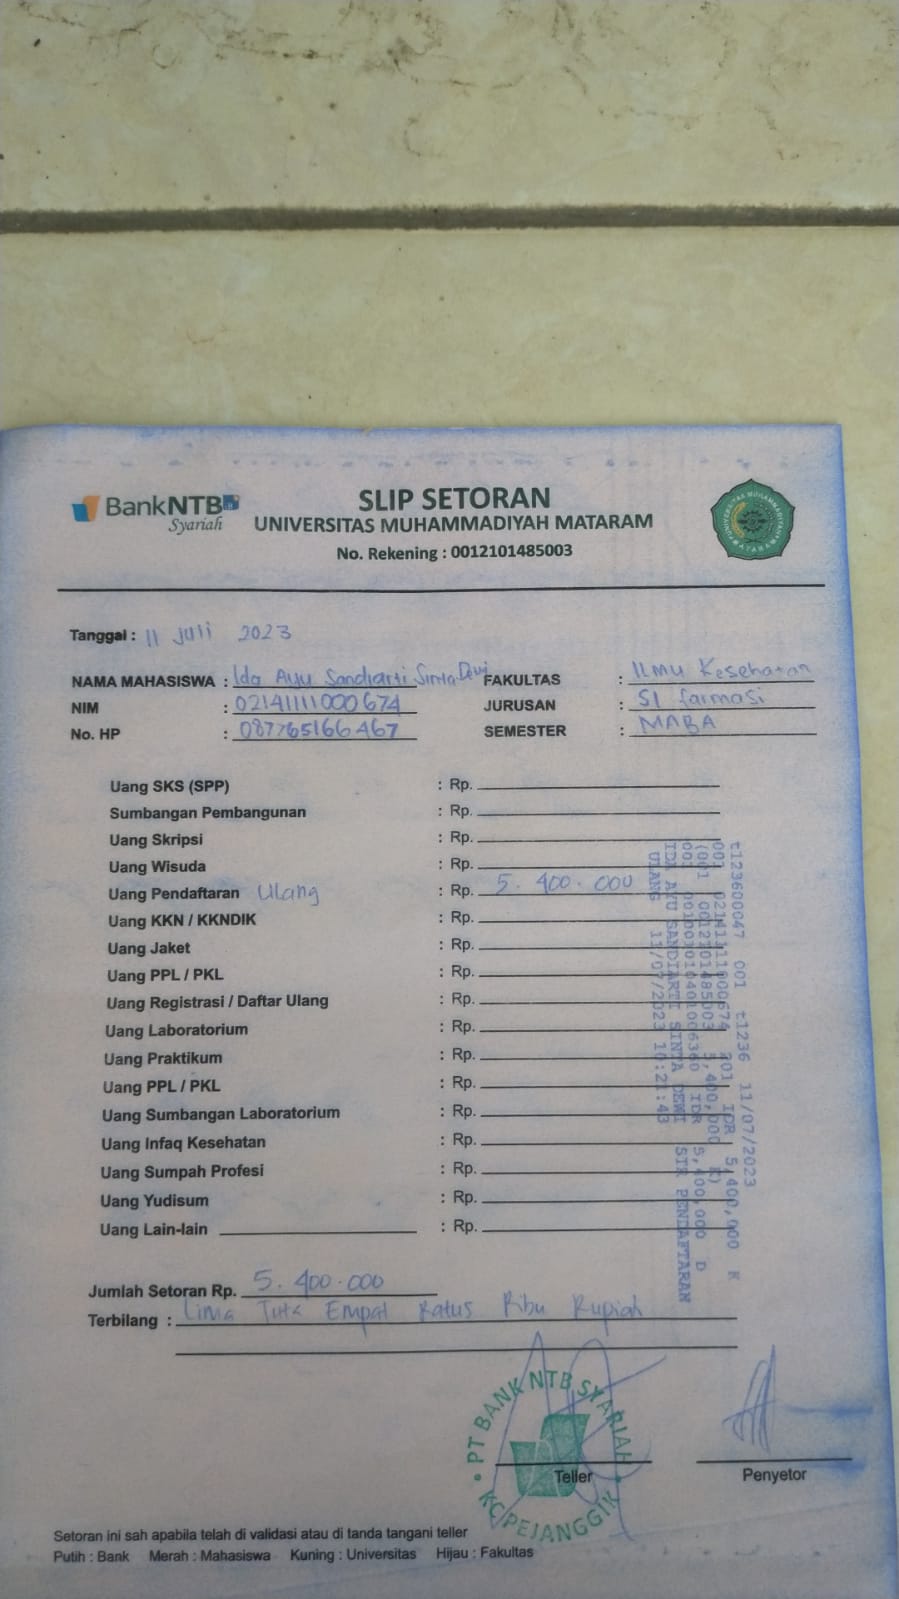 BankNTB
Syariah
SLIP SETORAN
UNIVERSITAS MUHAMMADIYAH MATARAM
No. Rekening : 0012101485003
UNIVERSITAS MUHAMMADIYAH
MATARAM
Tanggal : 11 Juli 2023
NAMA MAHASISWA : Ida Ayu Sandiarti Sinta Dewi
NIM : 02141111000674
No. HP : 087765166467
FAKULTAS : ILMU Kesehatan
JURUSAN : S1 farmasi
SEMESTER : MABA
Uang SKS (SPP) : Rp.
Sumbangan Pembangunan : Rp.
Uang Skripsi : Rp.
Uang Wisuda : Rp.
Uang Pendaftaran Ulang : Rp. 5.400.000
Uang KKN / KKNDIK : Rp.
Uang Jaket : Rp.
Uang PPL / PKL : Rp.
Uang Registrasi / Daftar Ulang : Rp.
Uang Laboratorium : Rp.
Uang Praktikum : Rp.
Uang PPL / PKL : Rp.
Uang Sumbangan Laboratorium : Rp.
Uang Infaq Kesehatan : Rp.
Uang Sumpah Profesi : Rp.
Uang Yudisum : Rp.
Uang Lain-lain : Rp.
t123600047 001 t1236 11/07/2023
001 02141111000674 201 IDR 5,400,000 K
(001 0012101485003 5,400,000 K)
001 IDR 5,400,000 D
IDA AYU SANDIARTI SINTA DEWI STR PENDAFTARAN
ULANG 11/07/2023 10:21:43
Jumlah Setoran Rp. 5.400.000
Terbilang : Lima Juta Empat Ratus Ribu Rupiah
PT BANK NTB SYARIAH
KC PEJANGGIK
Teller
Penyetor
Setoran ini sah apabila telah di validasi atau di tanda tangani teller
Putih : Bank Merah : Mahasiswa Kuning : Universitas Hijau : Fakultas